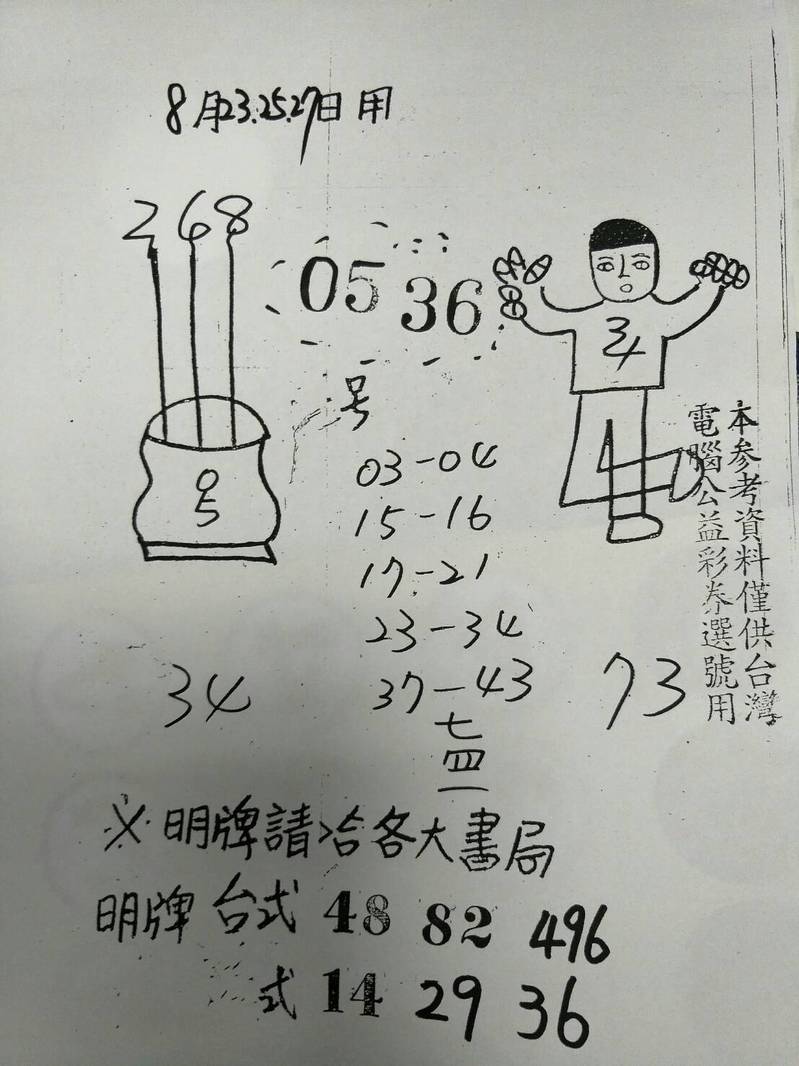 8月23.25.27日用
268
05 36
34
05
号
03-04
15-16
17-21
23-34
37-43
34
73
七
四
一
本参考資料僅供台灣
電腦公益彩券選號用
※明牌請洽各大書局
明牌 台式 48 82 496
式 14 29 36